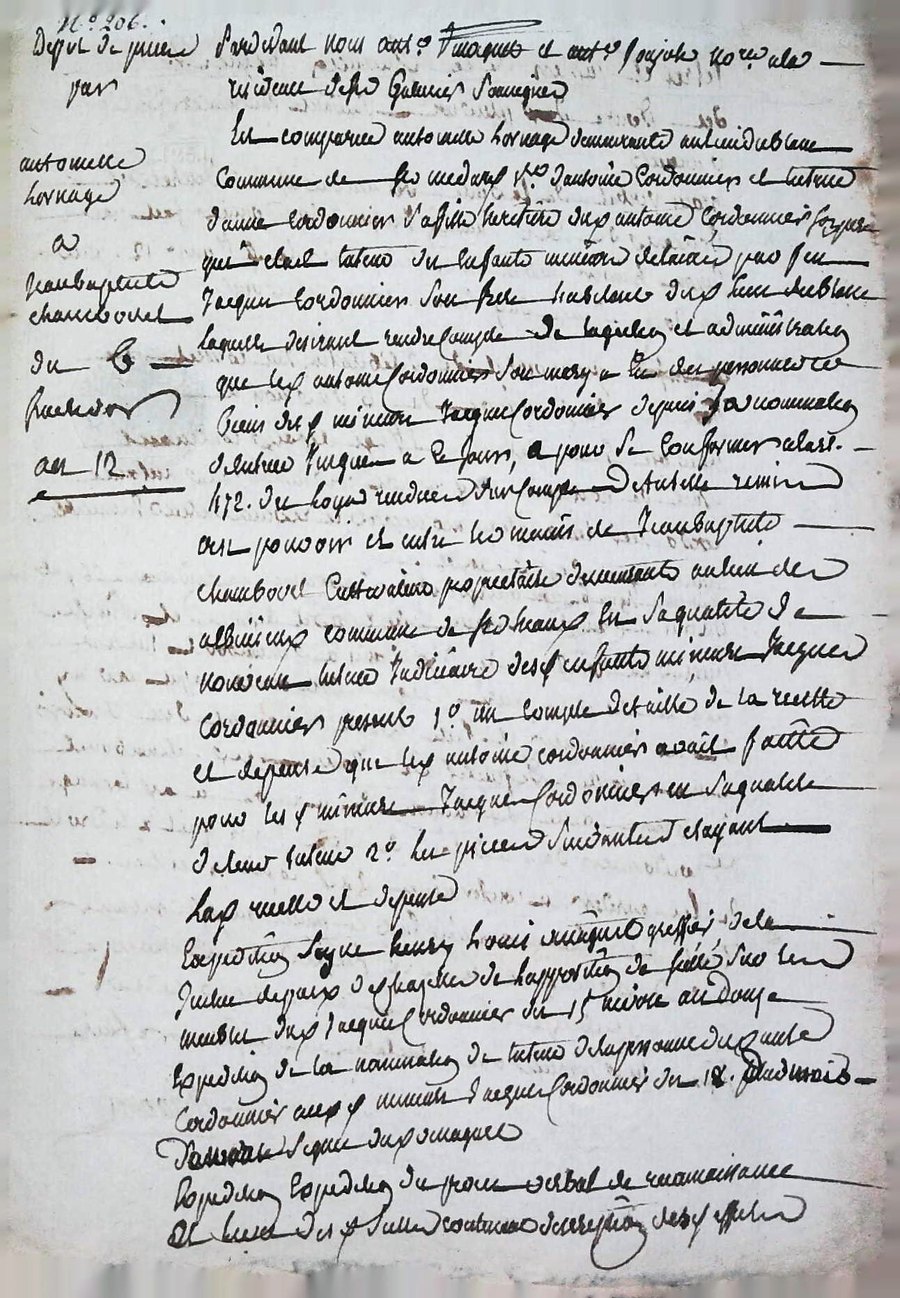 N.º 206.
Depot de pieces
par
antoinette
hornage
a
Jeanbaptiste
chambovet
du 6
fructidor
an 12
Pardevant nous ant.e et ant.e Poujole no.res a la
residence de S.t Galmier Soussignés
Est comparue antoinette hornage demeurante au lieu du blanc
Commune de S.t medard v.ve d'antoine Cordonnier et tutrice
d'anne Cordonnier Sa fille heritiere dud antoine Cordonnier
qui etoit tuteur des Enfants mineurs delaissés par feu
Jacques Cordonnier Son frere habitant dud lieu du blanc
laquelle desirant rendre Compte de la gestion et administration
que led antoine Cordonnier Son mary a eu des personnes et
biens desd mineurs Jacques Cordonnier depuis Sa nomination
de tuteur Jusques a ce Jour, a pour Se Conformer a l'art.
472. du Code rendu Son Compte detaillé remis
au pouvoir et entre les mains de Jeanbaptiste
chambovet Cultivateur proprietaire demeurant au lieu des
commune de En Sa qualité de
nouveau tuteur Judiciaire desd enfants mineurs Jacques
Cordonnier present 1.º un Compte detaillé de la recette
et depense que led antoine cordonnier avait faitte
pour lesd mineurs Jacques Cordonnier en Sa qualité
de leur tuteur 2.º les pieces Suivantes etayant
lad recette et depense
Expedition Signe henry Louis greffier de la
Justice de paix de de l'apposition de Scellé Sur les
meubles dud Jacques Cordonnier du 15 nivose an douze
Expedition de la nomination de tuteur de la personne dud antoine
Cordonnier auxd mineurs Jacques Cordonnier du 18. dud mois
Signé dud
Expedition Expedition du proces verbal de reconnaissance
Et levée desd Scellés contenant description desd effets